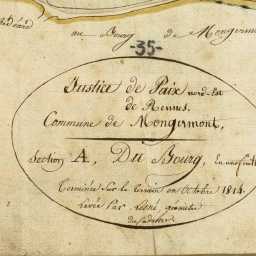 au Bourg de Mongerm
-35-
Justice de Paix nord-Est
de Rennes.
Commune de Mongermont,
Section A, Du Bourg, En une feuille
Terminée Sur le Terrain en Octobre 1814.
Levée Par géomètre